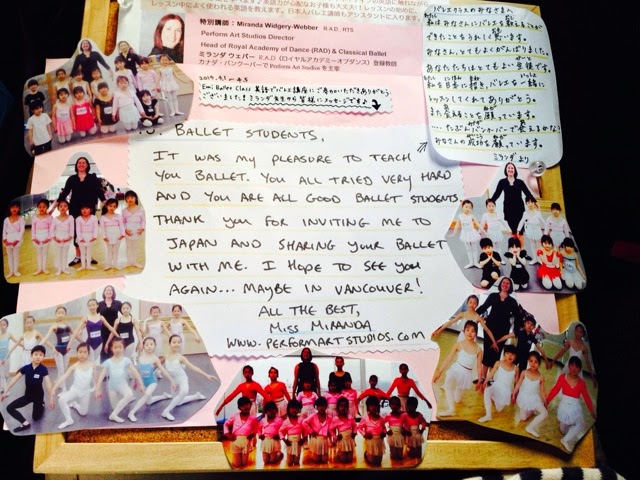 レッスン中によく使われる英語を教えます。
日本人バレエ講師もアシスタントに入ります。
特別講師：Miranda Widgery-Webber R.A.D., RTS
Perform Art Studios Director
Head of Royal Academy of Dance (RAD) & Classical Ballet
ミランダ ウェバー R.A.D（ロイヤルアカデミーオブダンス）登録教師
カナダ・バンクーバーで Perform Art Studios を主宰
Emi Ballet Class 英語でバレエ講座にご参加いただきありがとう
ございました！ミランダ先生から皆様にメッセージですよ
BALLET STUDENTS,
IT WAS MY PLEASURE TO TEACH
YOU BALLET. YOU ALL TRIED VERY HARD
AND YOU ARE ALL GOOD BALLET STUDENTS.
THANK YOU FOR INVITING ME TO
JAPAN AND SHARING YOUR BALLET
WITH ME. I HOPE TO SEE YOU
AGAIN... MAYBE IN VANCOUVER!
ALL THE BEST,
MISS MIRANDA
WWW.PERFORMARTSTUDIOS.COM
バレエクラスのみなさまへ
みなさん、とてもよくがんばりました。
あなたたちはとてもよい生徒です。
私を日本に招き、バレエを一緒に
レッスンしてくれてありがとう。
また会えることを願っています。
みなさんの成功を願っています。
ミランダより